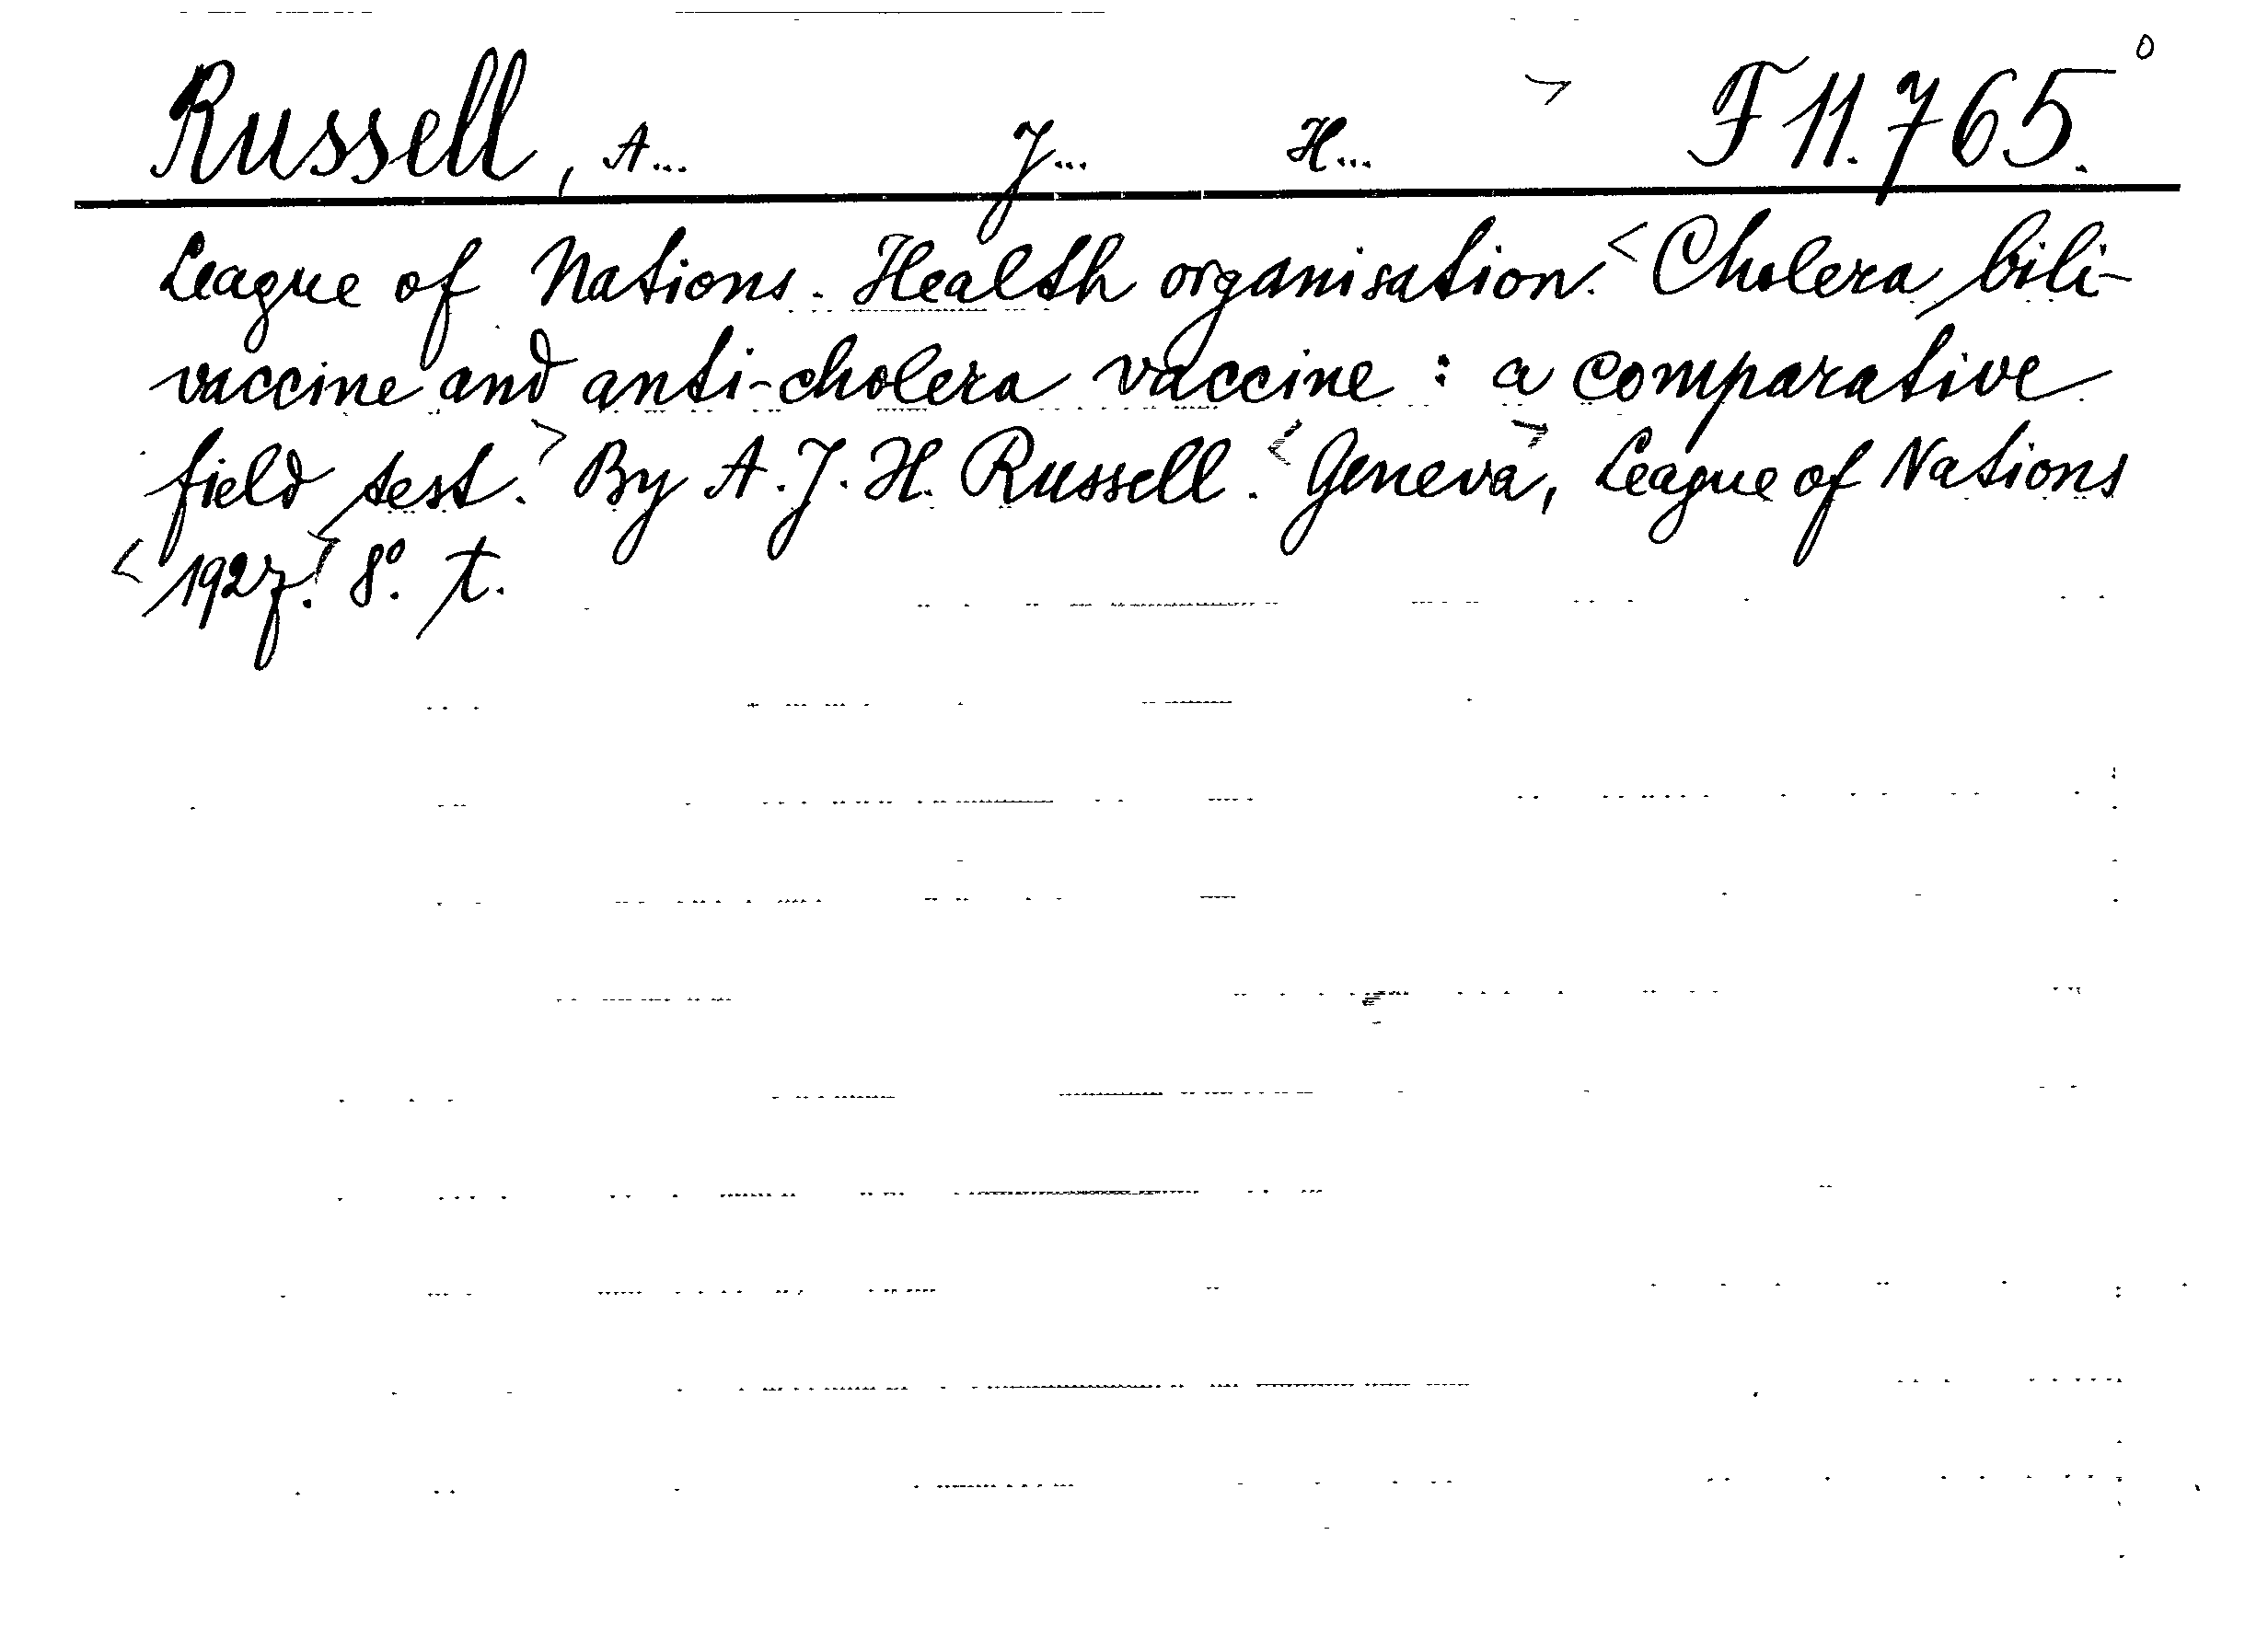 Russell, A... J... H... > F 11.765.°
League of Nations. Health organisation. < Cholera bili-
vaccine and anti-cholera vaccine : a comparative
field test. > By A. J. H. Russell. < Geneva >, League of Nations
< 1927. > 8°. t.